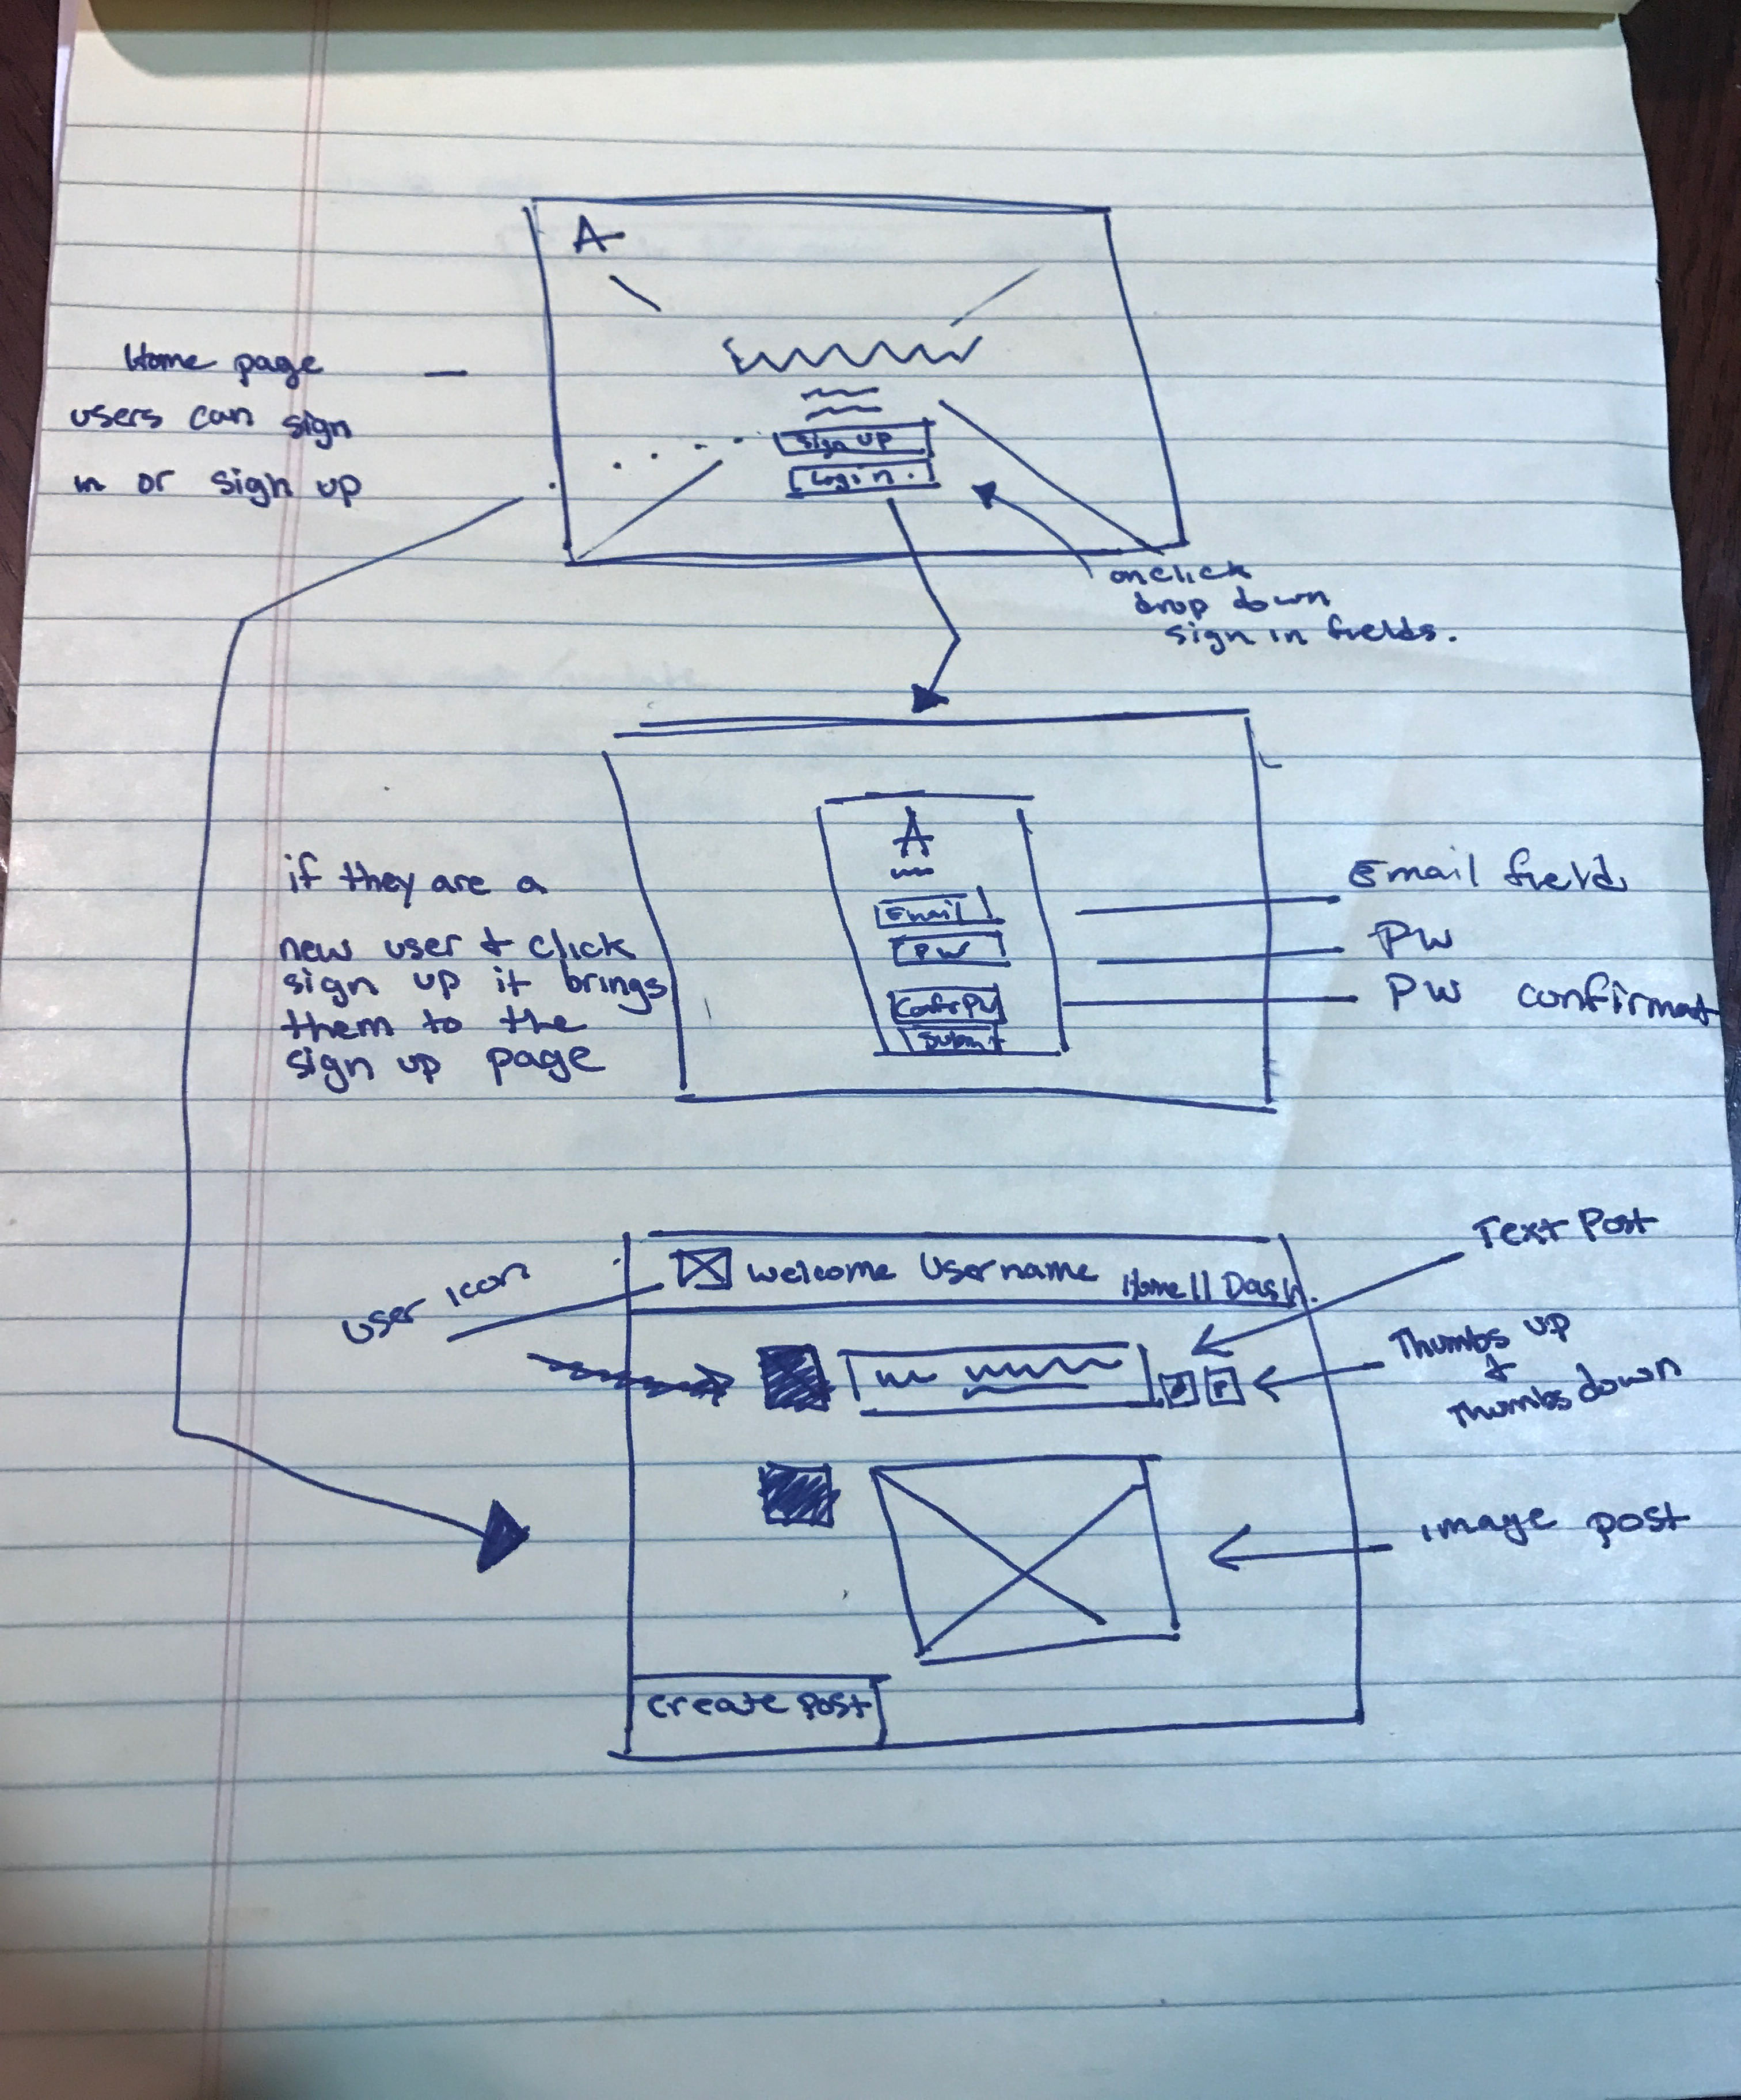 A
Home page
users can sign
in or sign up
Sign up
Login.
onclick
drop down
sign in fields.
if they are a
new user & click
sign up it brings
them to the
sign up page
A
Email
PW
Conf PW
Submit
Email field
PW
PW confirmat
user icon
welcome Username
Home || Dash.
Text Post
Thumbs up
&
Thumbs down
image post
create post